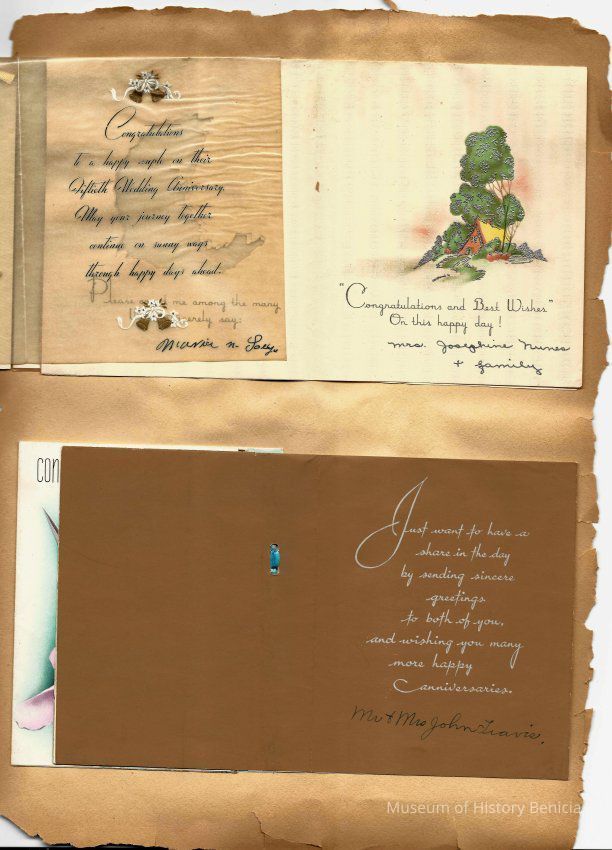 Congratulations
to a happy couple on their
Fiftieth Wedding Anniversary.
May your journey together
continue on sunny ways
through happy days ahead.
Please me among the many
erely say:
"Congratulations and Best Wishes"
On this happy day!
Mrs. Josephine Nunes
+ family
CON
Just want to have a
share in the day
by sending sincere
greetings
to both of you,
and wishing you many
more happy
anniversaries.
Mr & Mrs John Travis.
Museum of History Benicia